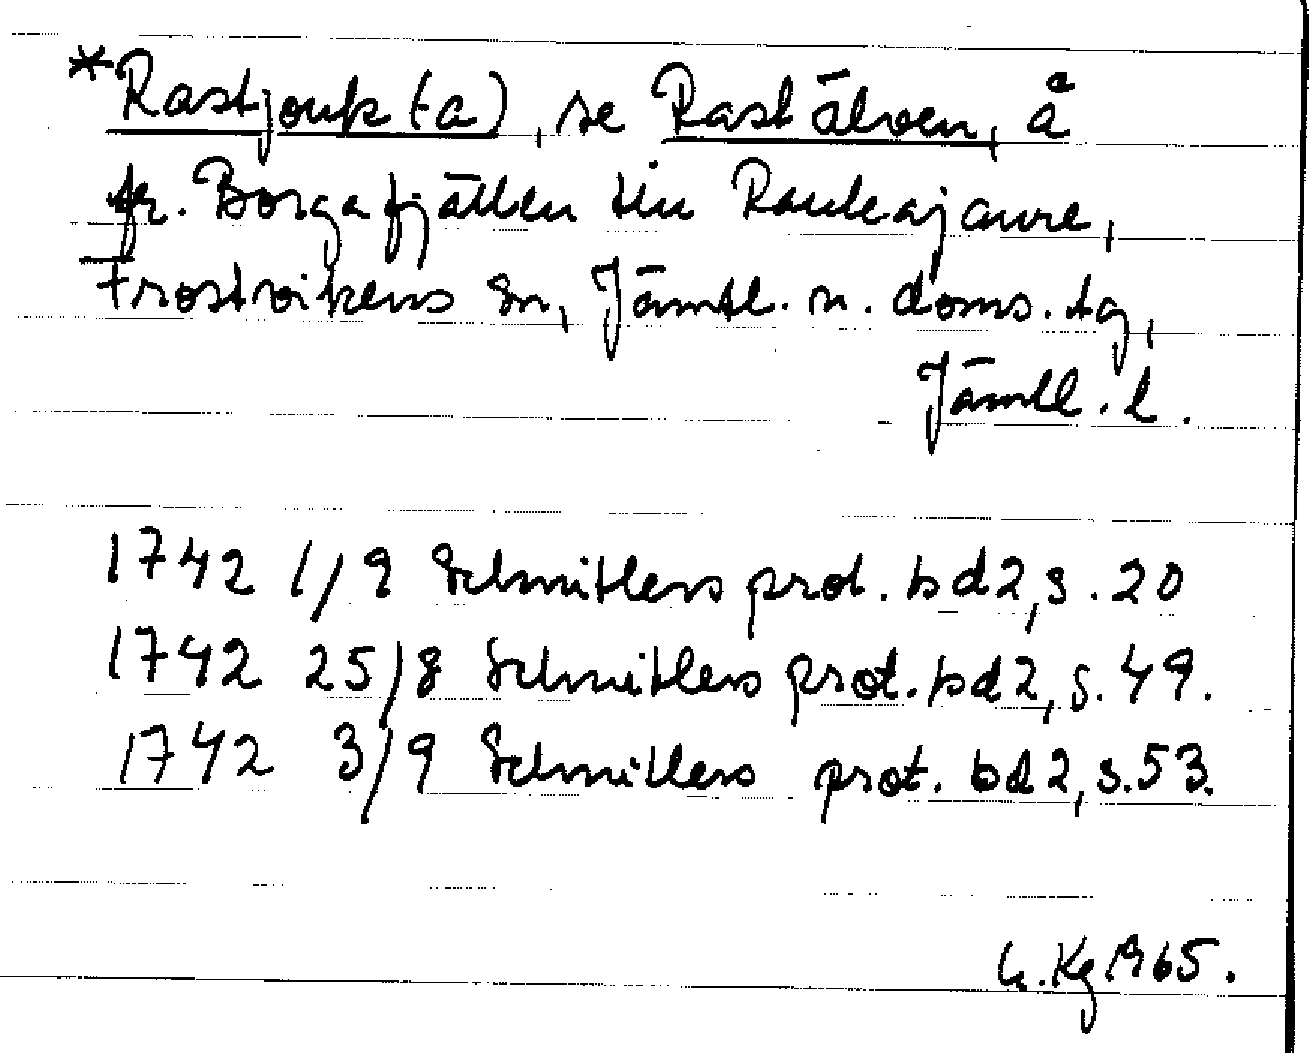 *Rastjouk(a), se Rastälven, å
fr. Borgafjällen till Raukajaure,
Frostvikens sn, Jämtl. n. doms. tg,
Jämtl. l.
1742 1/9 Schnitlers prot. bd 2, s. 20
1742 25/8 Schnitlers prot. bd 2, s. 49.
1742 3/9 Schnitlers prot. bd 2, s. 53.
Kg 1965.